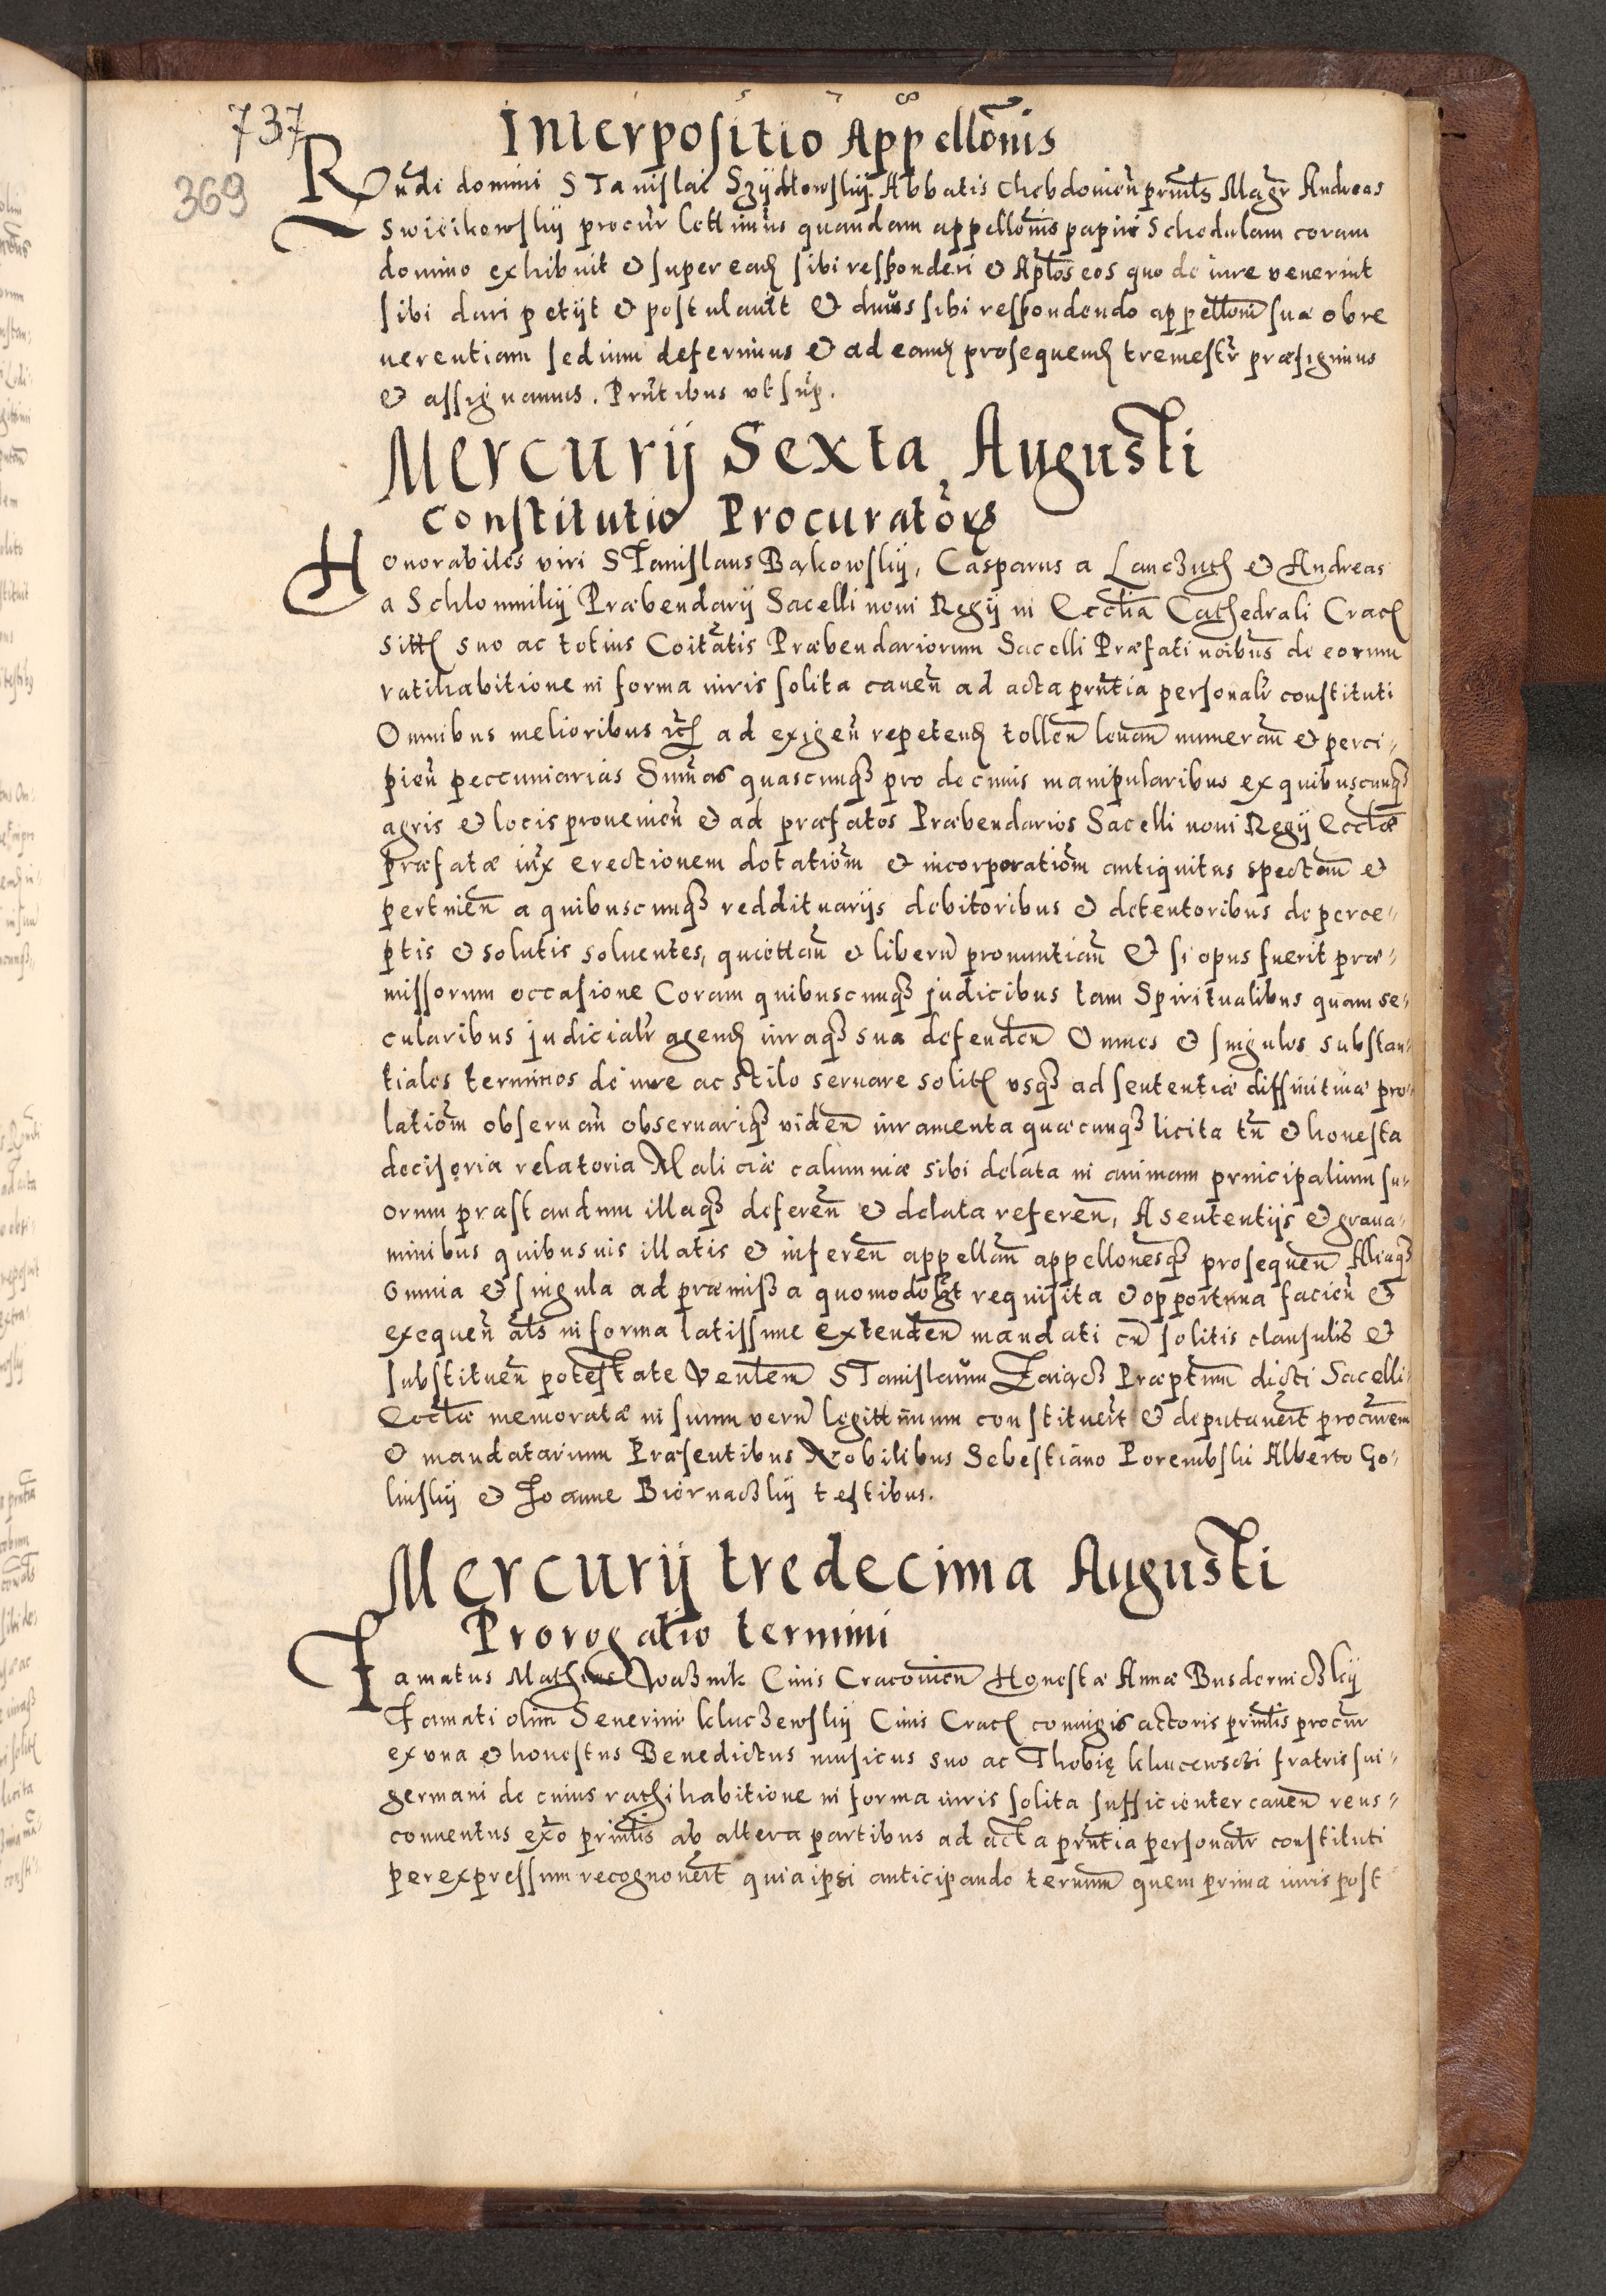 1 5 7 8
737
369
Interpositio Appellõnis
Rñdi domini Stanislai Szydłowskij Abbatis Chebdovieñ prñtis Magr Andreas
Swiėikowskij procur lėttimus quandam appellõnis papiri Schedulam coram
domino exhibuit et super eadem sibi responderi et Aplõs eos quo de iure venerint
sibi dari petijt et postulavit Et dnũs sibi respondendo appellõni suæ ob re
uerentiam sedium deferimus et ad eamd prosequemd tremestr præfigimus
et assignamus. Prñtibus vt sup.
Mercurij Sexta Augusti
Constitutio Procuratoris
Honorabiles viri Stanislaus Bąkowskij, Casparus a Lanczuth et Andreas
a Schlomnikij Præbendarij Sacelli noui Regij in Eccl̃ia Cathedrali Crac
sitt suo ac totius Coitãtis Præbendariorum Sacelli Præfati noibũs de eorum
ratihabitione in forma iuris solita caueñ ad acta prñtia personalr̃ constituti
Omnibus melioribus etc ad exigeñ repetend tolleñ leuañ numerañ et perci,
pieñ peccuniarias Sum̃as quascunq3 pro decimis manipularibus ex quibuscunq3
agris et locis provenieñ et ad præfatos Præbendarios Sacelli noui Regij Eccl̃æ
præfatæ iux̃ erectionem dotatiõm et incorporatiõm antiquitus spectañ et
pertineñ a quibuscunq3 reddituarijs debitoribus et detentoribus de perce,,
ptis et solutis soluentes, quiettañ et liberũ pronuntiañ Et si opus fuerit præ,,
missorum occasione Coram quibuscunq3 judicibus tam Spiritualibus quam se,,
cularibus judicialr̃ agend iuraq3 sua defendeñ Omnes et singulos substan,,
tiales terminos de iure ac stilo seruare solit vsq3 ad sententiæ diffinitiuæ pro,,
latiõm obseruañ obseruariq3 videñ iuramenta quæcunq3 licita tñ et honesta
decisoria relatoria Maliciæ calumniæ sibi delata in animam principalium su,,
orum præstandum illaq3 defereñ et delata refereñ, A sententijs et graua,,
minibus quibusuis illatis et infereñ appellañ appellonesq3 prosequeñ Aliaq3
omnia et singula ad præmissa quomodolt requisita et opportuna facieñ et
exequeñ als in forma latissime extendeñ mandati cũ solitis clausulis et
substitueñ potestate Venlem Stanislaum Zaiącz Præptum dicti Sacelli
Eccl̃æ memoratæ in suum verũ legittimum constituert et deputauert procurem
et mandatarium Præsentibus Nobilibus Sebestiano Porembski Alberto Go,,
linskij et Joanne Biernaczkij testibus.
Mercurij tredecima Augusti
Prorogatio termini
Famatus Mathias Waznik Ciuis Cracouieñ Honestæ Annæ Busderniczkij
Famati olim Seuerini kluczewskij Ciuis Crac coniugis actoris prin̂lis procur
ex vna et honestus Benedictus musicus suo ac Thobię kluczewsczi fratris sui,,
germani de cuius rathihabitione in forma iuris solita sufficienter caueñ reus,,
conuentus exo prin̂lis ab altera partibus ad acta prñtia personalr̃ constituti
per expressum recognouert quia ipsi anticipando termim̃ quem prima iuris post